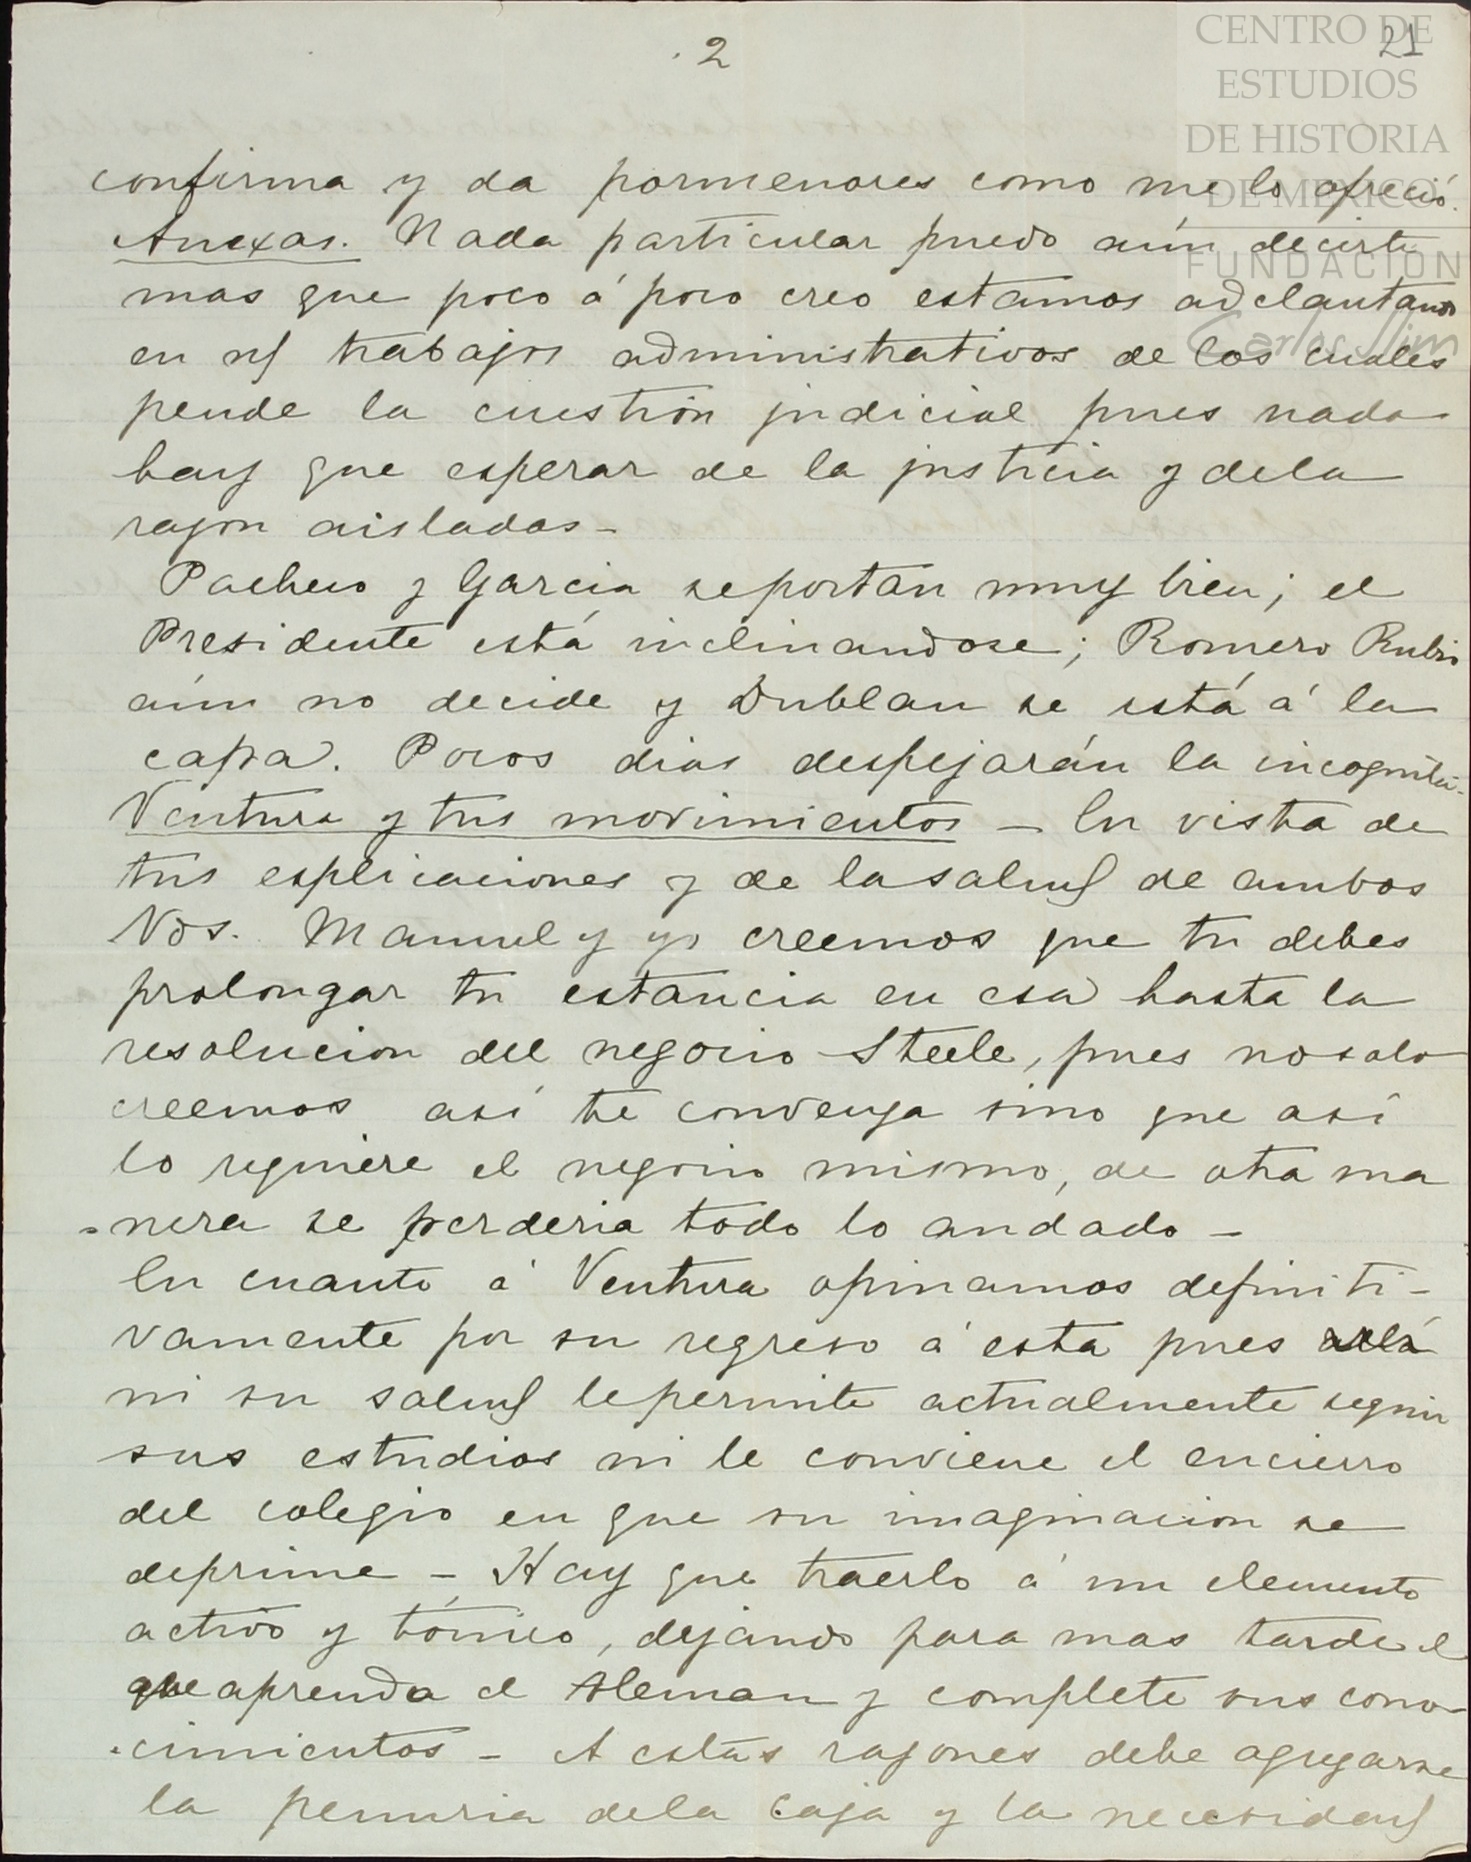 2
21
CENTRO DE
ESTUDIOS
DE HISTORIA
DE MÉXICO
FUNDACIÓN
Carlos Slim
confirma y da pormenores como me lo ofreció.
Anexas. Nada particular puedo aún decirte
mas que poco á poco creo estamos adelantando
en ns trabajos administrativos de los cuales
pende la cuestión judicial pues nada
hay que esperar de la justicia y dela
razon aisladas-
Pacheco y Garcia se portan muy bien; el
Presidente está inclinandose; Romero Rubio
aún no decide y Dublan se está á la
capa. Pocos dias despejarán la incognita.
Ventura y tus movimientos - En vista de
tus esplicaciones y de la salud de ambos
Vds. Manuel y yo creemos que tu debes
prolongar tu estancia en esa hasta la
resolucion del negocio Steele, pues no solo
creemos así te convenga sino que así
lo requiere el negocio mismo, de otra ma
-nera se perderia todo lo andado -
En cuanto á Ventura opinamos definiti-
vamente por su regreso á esta pues allá
ni su salud le permite actualmente seguir
sus estudios ni le conviene el encierro
del colegio en que su imaginacion se
deprime - Hay que traerlo á un elemento
activo y tónico, dejando para mas tarde el
que aprenda el Aleman y complete sus cono-
-cimientos - A estas razones debe agregarse
la penuria dela caja y la necesidad